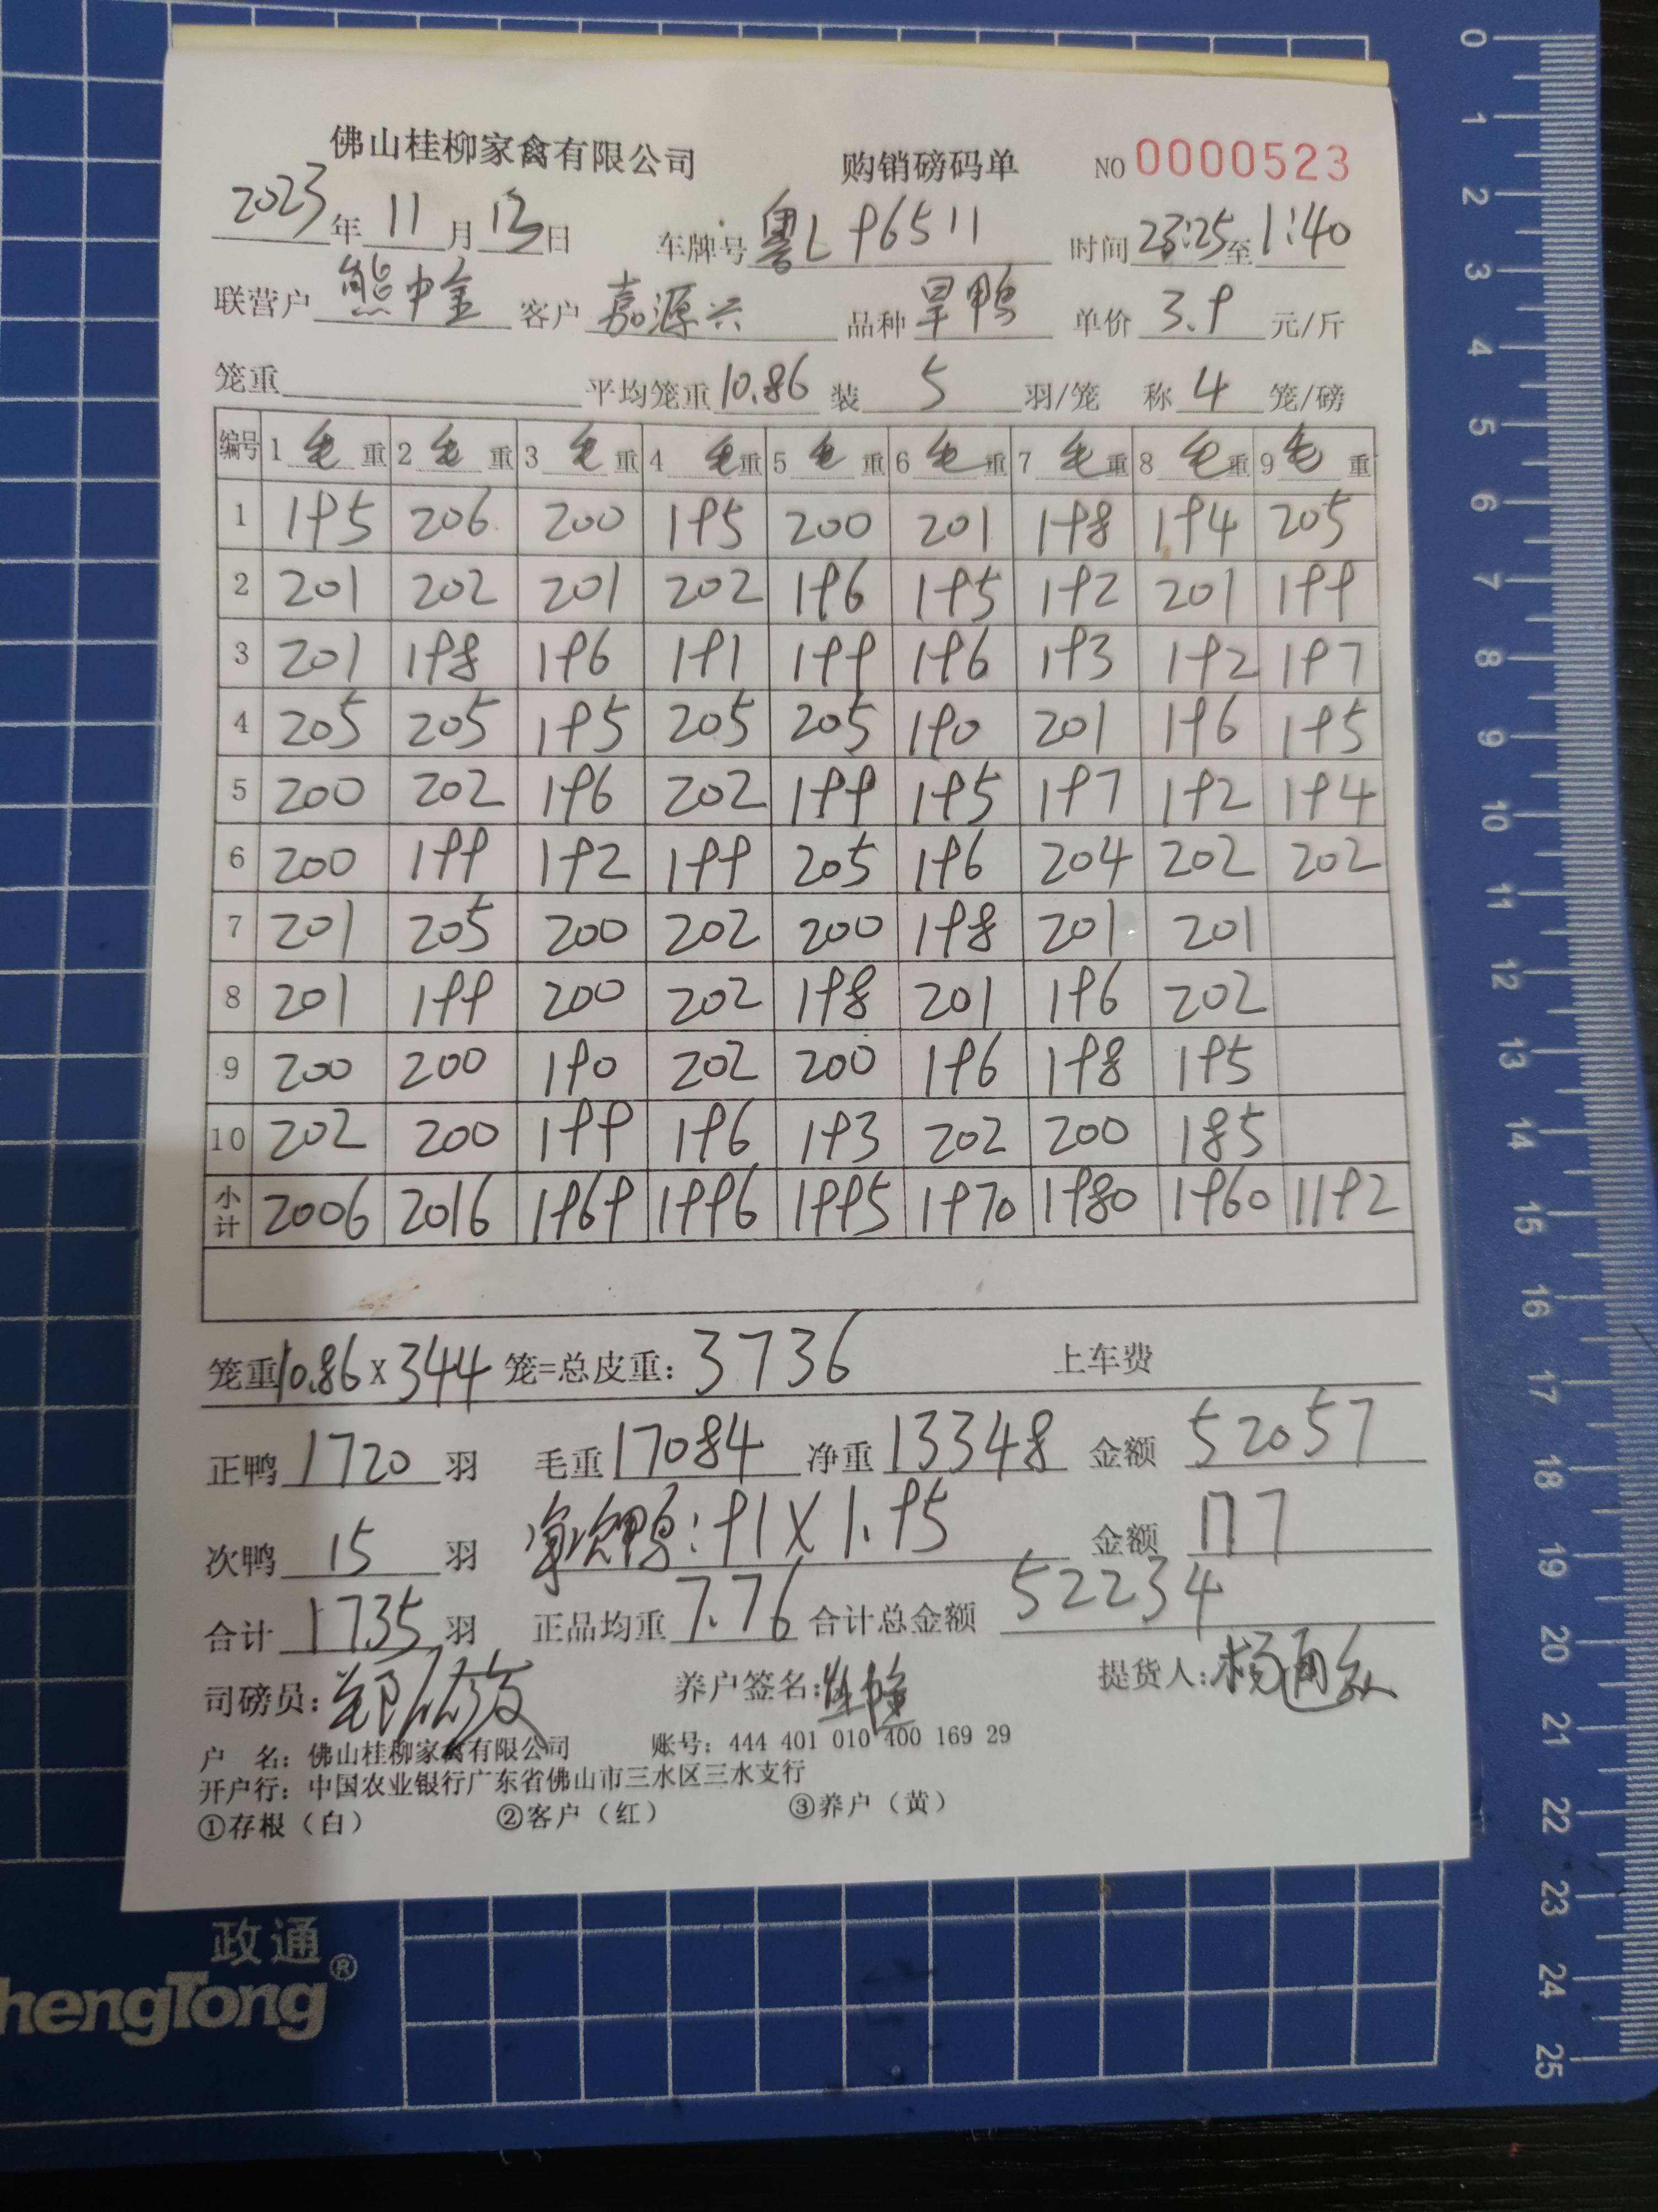 佛山桂柳家禽有限公司 购销磅码单 NO 0000523
2023年11月13日 车牌号 粤L 96511 时间 23:25 至 1:40
联营户 熊中金 客户 嘉源兴 品种 旱鸭 单价 3.9 元/斤
笼重 平均笼重 10.86 装 5 羽/笼 称 4 笼/磅
编号 1 毛重 2 毛重 3 毛重 4 毛重 5 毛重 6 毛重 7 毛重 8 毛重 9 毛重
1 195 206 200 195 200 201 198 194 205
2 201 202 201 202 196 195 192 201 199
3 201 198 196 191 199 196 193 192 197
4 205 205 195 205 205 190 201 196 195
5 200 202 196 202 199 195 197 192 194
6 200 199 192 199 205 196 204 202 202
7 201 205 200 202 200 198 201 201
8 201 199 200 202 198 201 196 202
9 200 200 190 202 200 196 198 195
10 202 200 199 196 193 202 200 185
小计 2006 2016 1969 1996 1995 1970 1980 1960 1192
笼重 10.86 x 344 笼=总皮重: 3736 上车费
正鸭 1720 羽 毛重 17084 净重 13348 金额 52057
次鸭 15 羽 次鸭: 91 X 1.95 金额 177
合计 1735 羽 正品均重 7.76 合计总金额 52234
司磅员: 养户签名: 提货人: 杨
户 名: 佛山桂柳家禽有限公司 账号: 444 401 010 400 169 29
开户行: 中国农业银行广东省佛山市三水区三水支行
①存根（白） ②客户（红） ③养户（黄）
政通®
hengTong
0
1
2
3
4
5
6
7
8
9
10
11
12
13
14
15
16
17
18
19
20
21
22
23
24
25